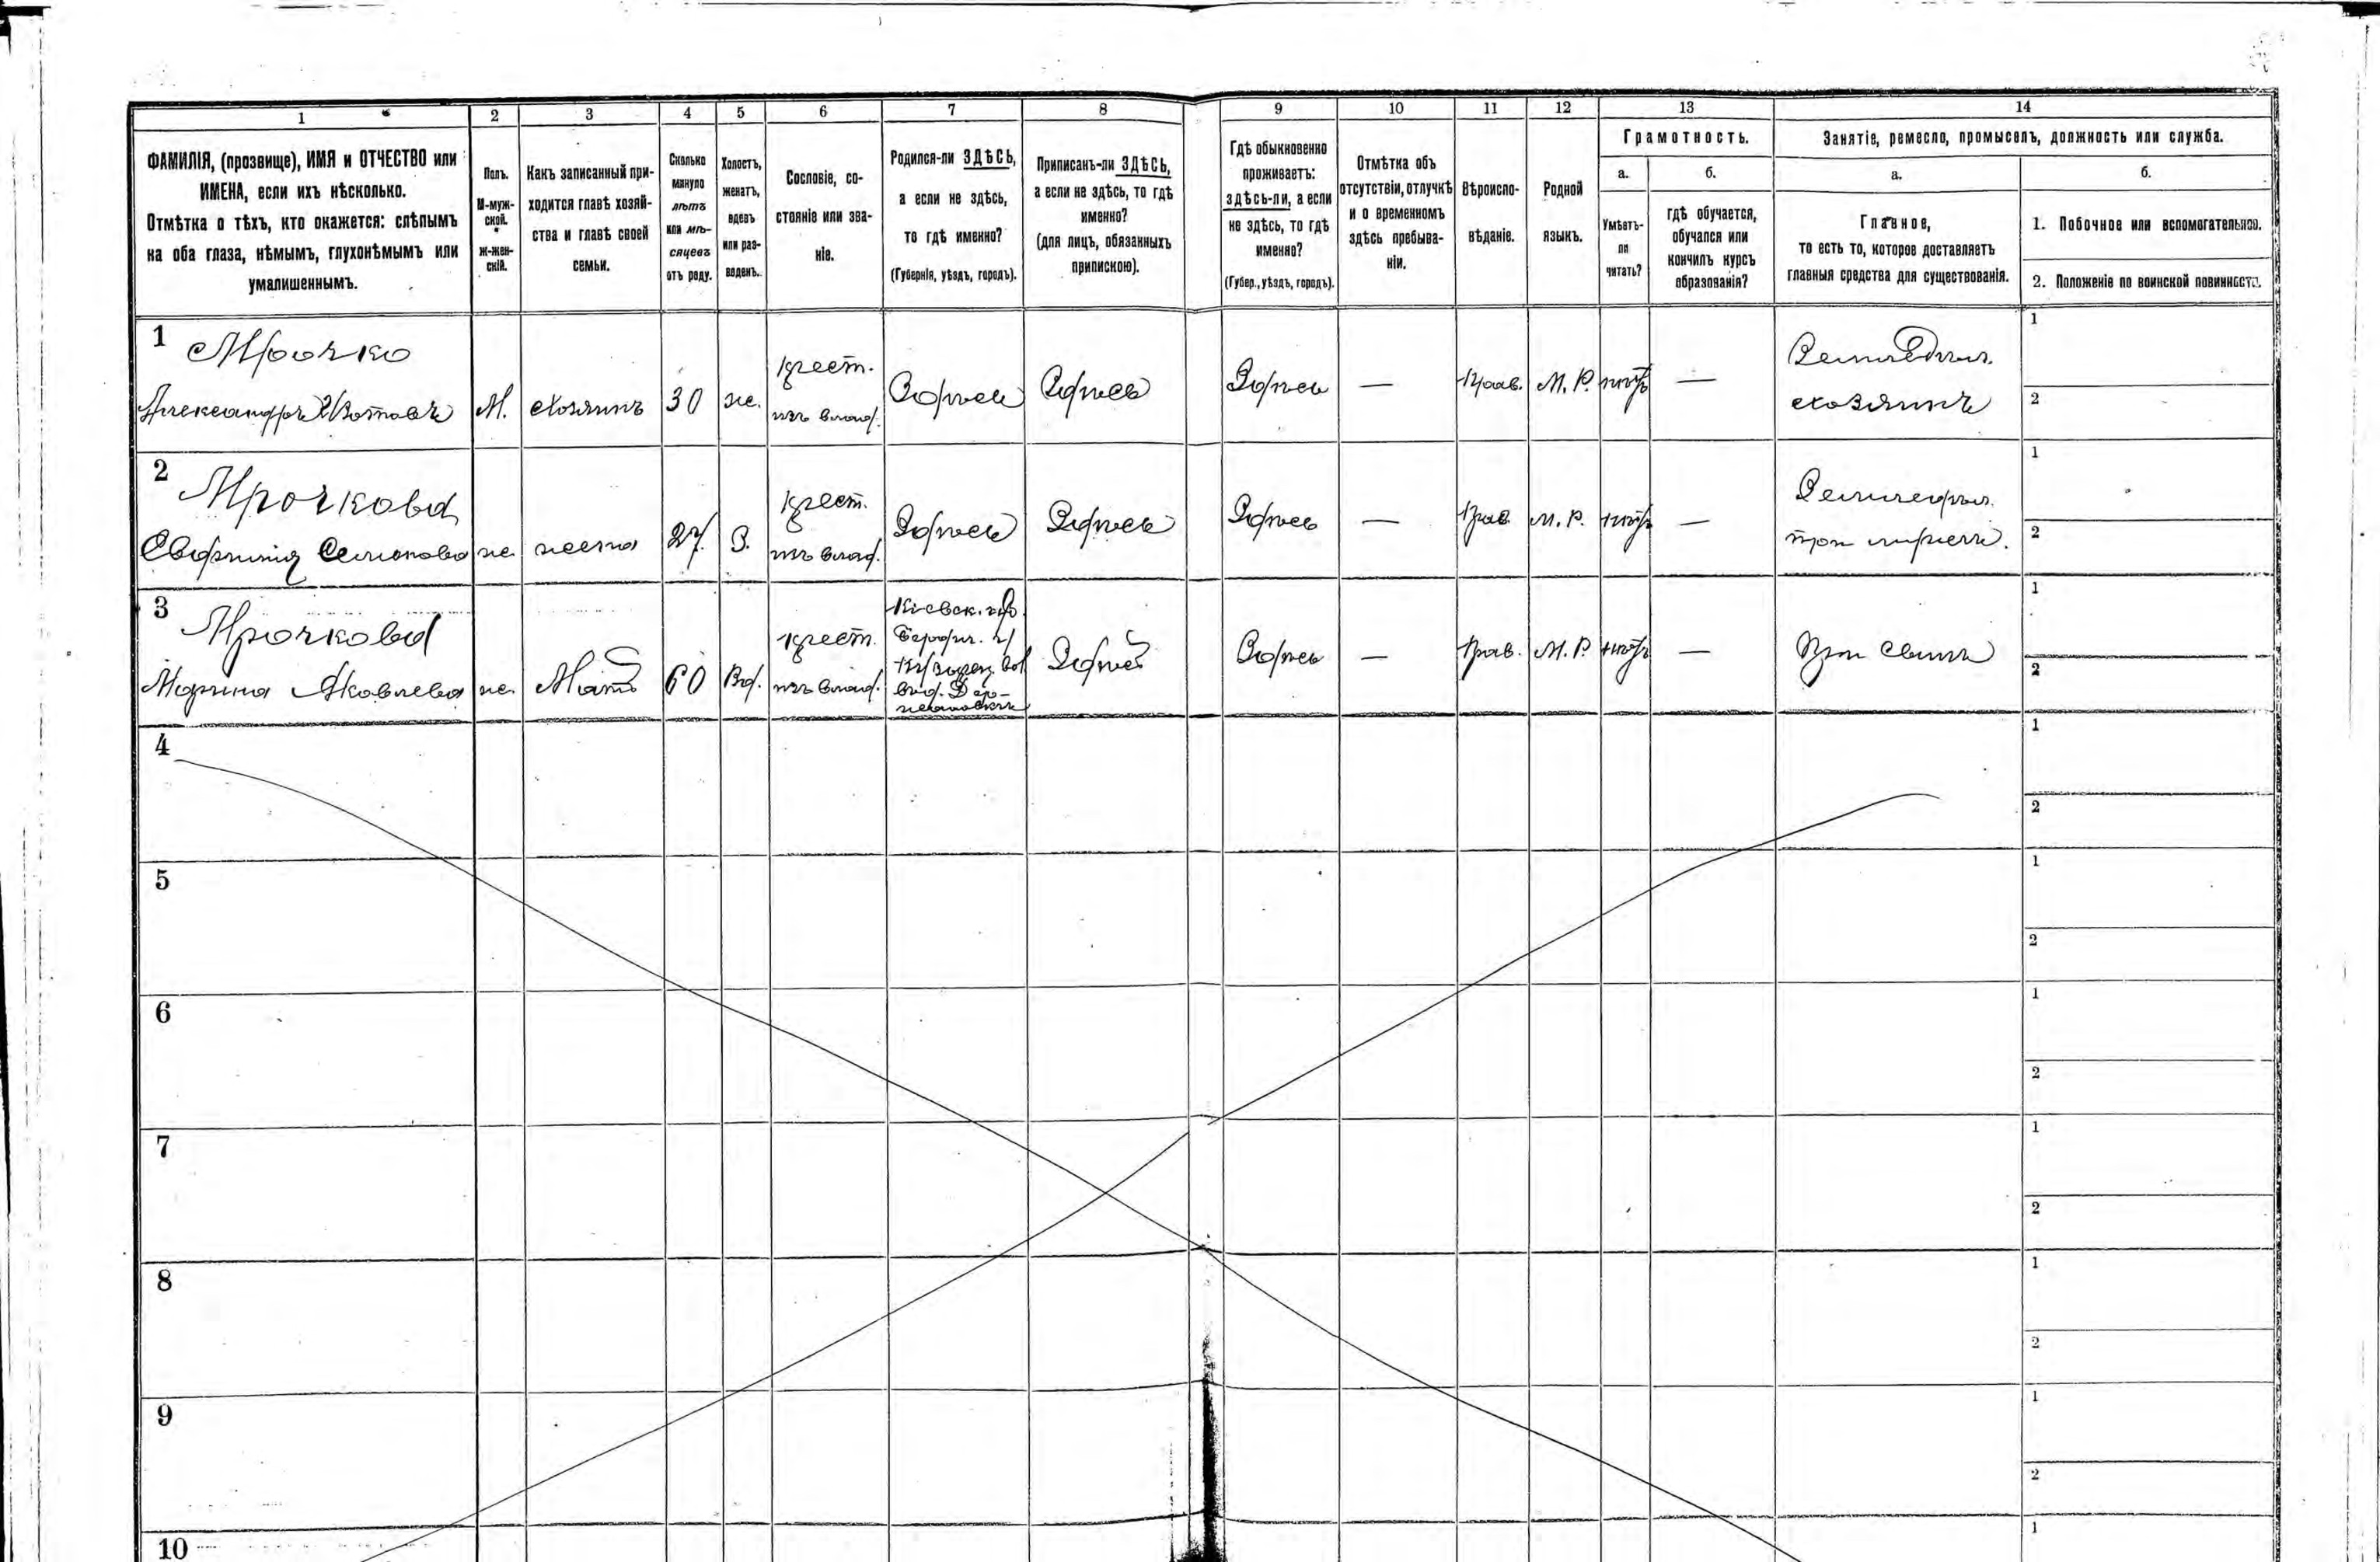 1 2 3 4 5 6 7 8 9 10 11 12 13 14
ФАМИЛІЯ, (прозвище), ИМЯ и ОТЧЕСТВО или
ИМЕНА, если ихъ нѣсколько.
Отмѣтка о тѣхъ, кто окажется: слѣпымъ
на оба глаза, нѣмымъ, глухонѣмымъ или
умалишеннымъ.
Полъ.
М-муж-
ской.
Ж-жен-
скій.
Какъ записанный при-
ходится главѣ хозяй-
ства и главѣ своей
семьи.
Сколько
минуло
лѣтъ
или мѣ-
сяцевъ
отъ роду.
Холостъ,
женатъ,
вдовъ
или раз-
веденъ.
Сословіе, со-
стояніе или зва-
ніе.
Родился-ли ЗДѢСЬ,
а если не здѣсь,
то гдѣ именно?
(Губернія, уѣздъ, городъ).
Приписанъ-ли ЗДѢСЬ,
а если не здѣсь, то гдѣ
именно?
(для лицъ, обязанныхъ
припискою).
Гдѣ обыкновенно
проживаетъ:
здѣсь-ли, а если
не здѣсь, то гдѣ
именно?
(Губер., уѣздъ, городъ).
Отмѣтка объ
отсутствіи, отлучкѣ
и о временномъ
здѣсь пребыва-
ніи.
Вѣроиспо-
вѣданіе.
Родной
языкъ.
Грамотность.
а.
Умѣетъ-
ли
читать?
б.
гдѣ обучается,
обучался или
кончилъ курсъ
образованія?
Занятіе, ремесло, промыселъ, должность или служба.
а.
Главное,
то есть то, которое доставляетъ
главныя средства для существованія.
б.
1. Побочное или вспомогательное.
2. Положеніе по воинской повинности.
1 Мрочко
Александръ
М.
хозяинъ
30
же.
крест.
изъ влад.
Здѣсь
Здѣсь
Здѣсь
—
Прав.
М. Р.
нѣтъ
—
хозяинъ
1
2
2 Мрочкова
Семенова
же
жена
27
З.
крест.
изъ влад.
Здѣсь
Здѣсь
Здѣсь
—
Прав
М. Р.
нѣтъ
—
при мужѣ.
1
2
3 Мрочкова
Марина Яковлева
же.
Мать
60
Вд.
крест.
изъ влад.
Кіевск. губ.
Здѣсь
Здѣсь
—
Прав.
М. Р.
нѣтъ
—
При сынѣ
1
2
4
1
2
5
1
2
6
1
2
7
1
2
8
1
2
9
1
2
10
1